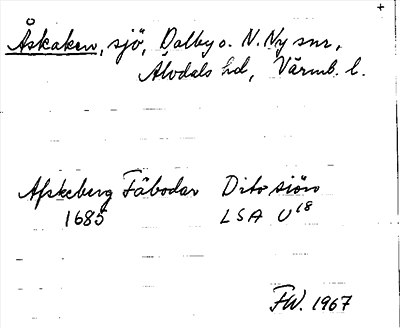 +
Åskaken, sjö, Dalby o. N. Ny snr,
Älvdals hd, Värml. l.
Afskeberg Fäbodar Dito siön
1685 LSA U18
FW. 1967